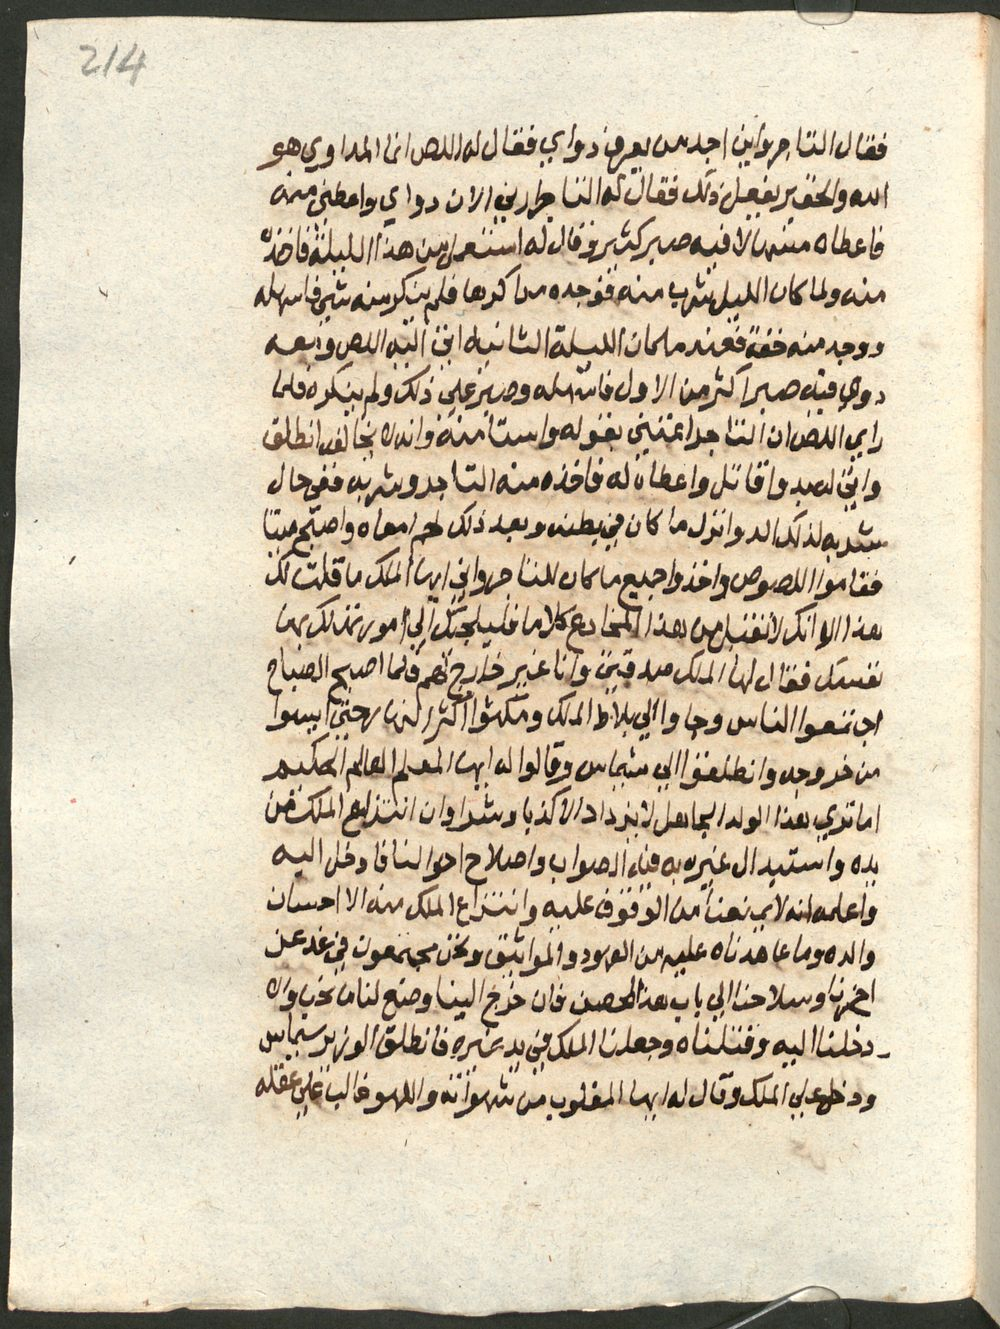 214
فقال التاجر واين اجد من يعرف دواي فقال له اللص انما المداوي هو
الله والحقير يفعل ذلك فقال له التاجر ارني الان دواي واعطني منه
فاعطاه مسهلا فيه صبر كثير وقال له استعمل من هذا الليلة فاخذه
منه ولما كان الليل شرب منه فوجده مر كرها فلم ينكر منه شي فاسهله
ووجد منه خفة فعند ما كان الليلة الثانيه اتي اليه اللص ومعه
دوي فيه صبر اكثر من الاول فاسهله وصبر علي ذلك ولم ينكره فلما
راي اللص ان التاجر اعتني بقوله واستامنه وانه لا يخالفه انطلق
واتي له بدوا قاتل واعطاه له فاخذه منه التاجر وشربه ففي حال
شربه لذلك الدوا نزل ما كان في بطنه وبعد ذلك امعاه واصبح ميتا
فقاموا اللصوص واخذوا جميع ما كان للتاجر واني ايها الملك ما قلت لك
هذا الا وانك لا تقبل من هذا المخادع كلاما فيلجيك الي امور تهلك بها
نفسك فقال لها الملك صدقتي وانا غير خارج لهم فلما اصبح الصباح
اجتمعوا الناس وجاوا الي بلاط الملك ومكثوا اكثر النهار حتي ايسوا
من خروجه وانطلقوا الي شماس وقالوا له ايها المعلم العالم الحكيم
اما تري هذا الولد الجاهل لا يزداد الا كذبا وشرا وان انتزاع الملك من
يده واستبدال غيره به فيه الصواب واصلاح احوالنا فادخل اليه
واعلمه انه لا يمنعنا من الوقوف عليه وانتزاع الملك منه الا احسان
والده وما عاهدناه عليه من العهود والمواثيق ونحن مجتمعون في غد عن
اخرنا وسلاحنا الي باب هذا الحصن فان خرج الينا وصنع لنا ما نحب والا
دخلنا اليه وقتلناه وجعلنا الملك في يد غيره فانطلق الوزير شماس
ودخل علي الملك وقال له ايها المغلوب من شهواته واللهو غالب علي عقله